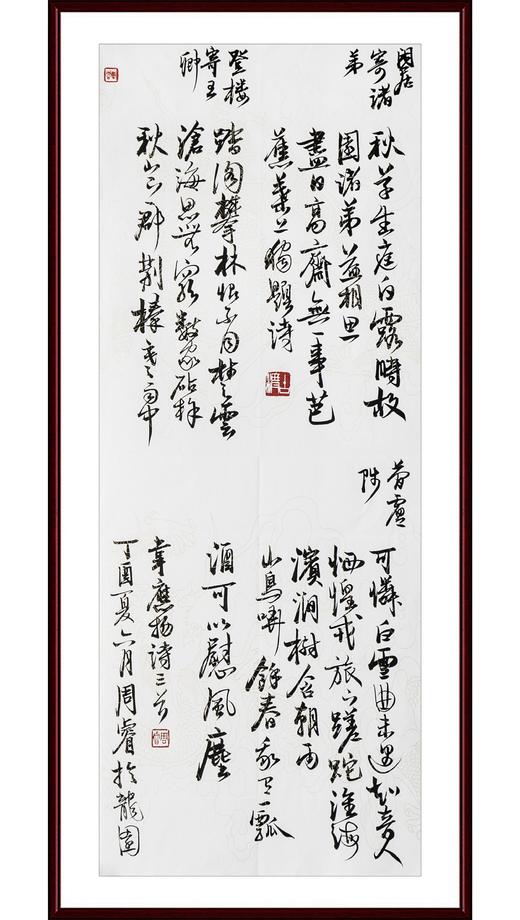 閑居
寄諸
弟
秋草生庭白露時故
園諸弟益相思
盡日高齋無一事芭
蕉葉上獨題詩
登楼
寄王
卿
踏閣攀林恨不同楚雲
滄海思無窮數家砧杵
秋山下一郡荊榛寒雨中
簡盧
陟
可憐白雪曲未遇知音人
恓惶戎旅下蹉跎淮海
濱澗樹含朝雨
山鳥哢餘春我有一瓢
酒可以慰風塵
韋應物詩三首
丁酉夏六月周睿於龍園